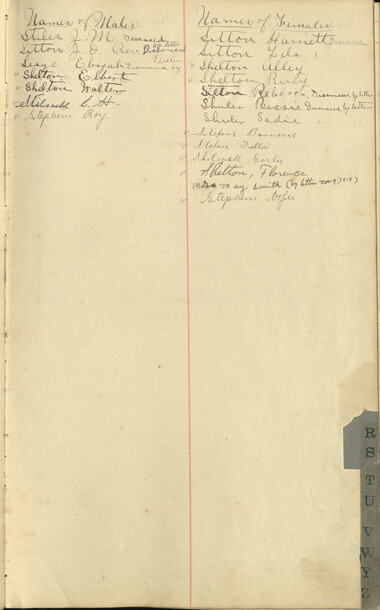 Names of Males
Stiles J. M. Deceased
Sitton J. D. Rev. Dismissed by letter
Seay Ebijah Dismissed by letter
Shelton Elbert
Shelton Walter
Stilwell C. H.
Stephens Roy
Names of Females
Sitton Harriett Deceased
Sitton Lela
Shelton Alley
Shelton Ruby
Sitton Rebecca, Dismissed by letter
Shuler Bessie Dismissed by letter
Shuler Sadie
Della
Stilwell
Shelton, Florence
May Smith (by letter
Stephens
R
S
T
U
V
W
Y
Z